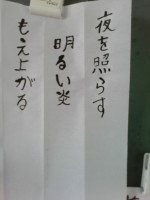 夜を照らす
明るい炎
もえ上がる